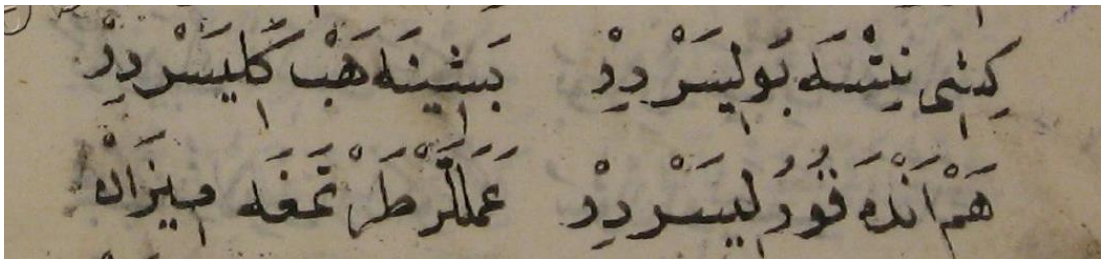 كِشِى نِتْسَه بُولِيسَرْ دِرْ بَشِينَه هَبْ كَلِيسَرْ دِرْ
هَمْ اَنْدَه قُورُلِيسَرْ دِرْ عَمَللَّرْ طَرْتَمَغَه مِيزَانْ